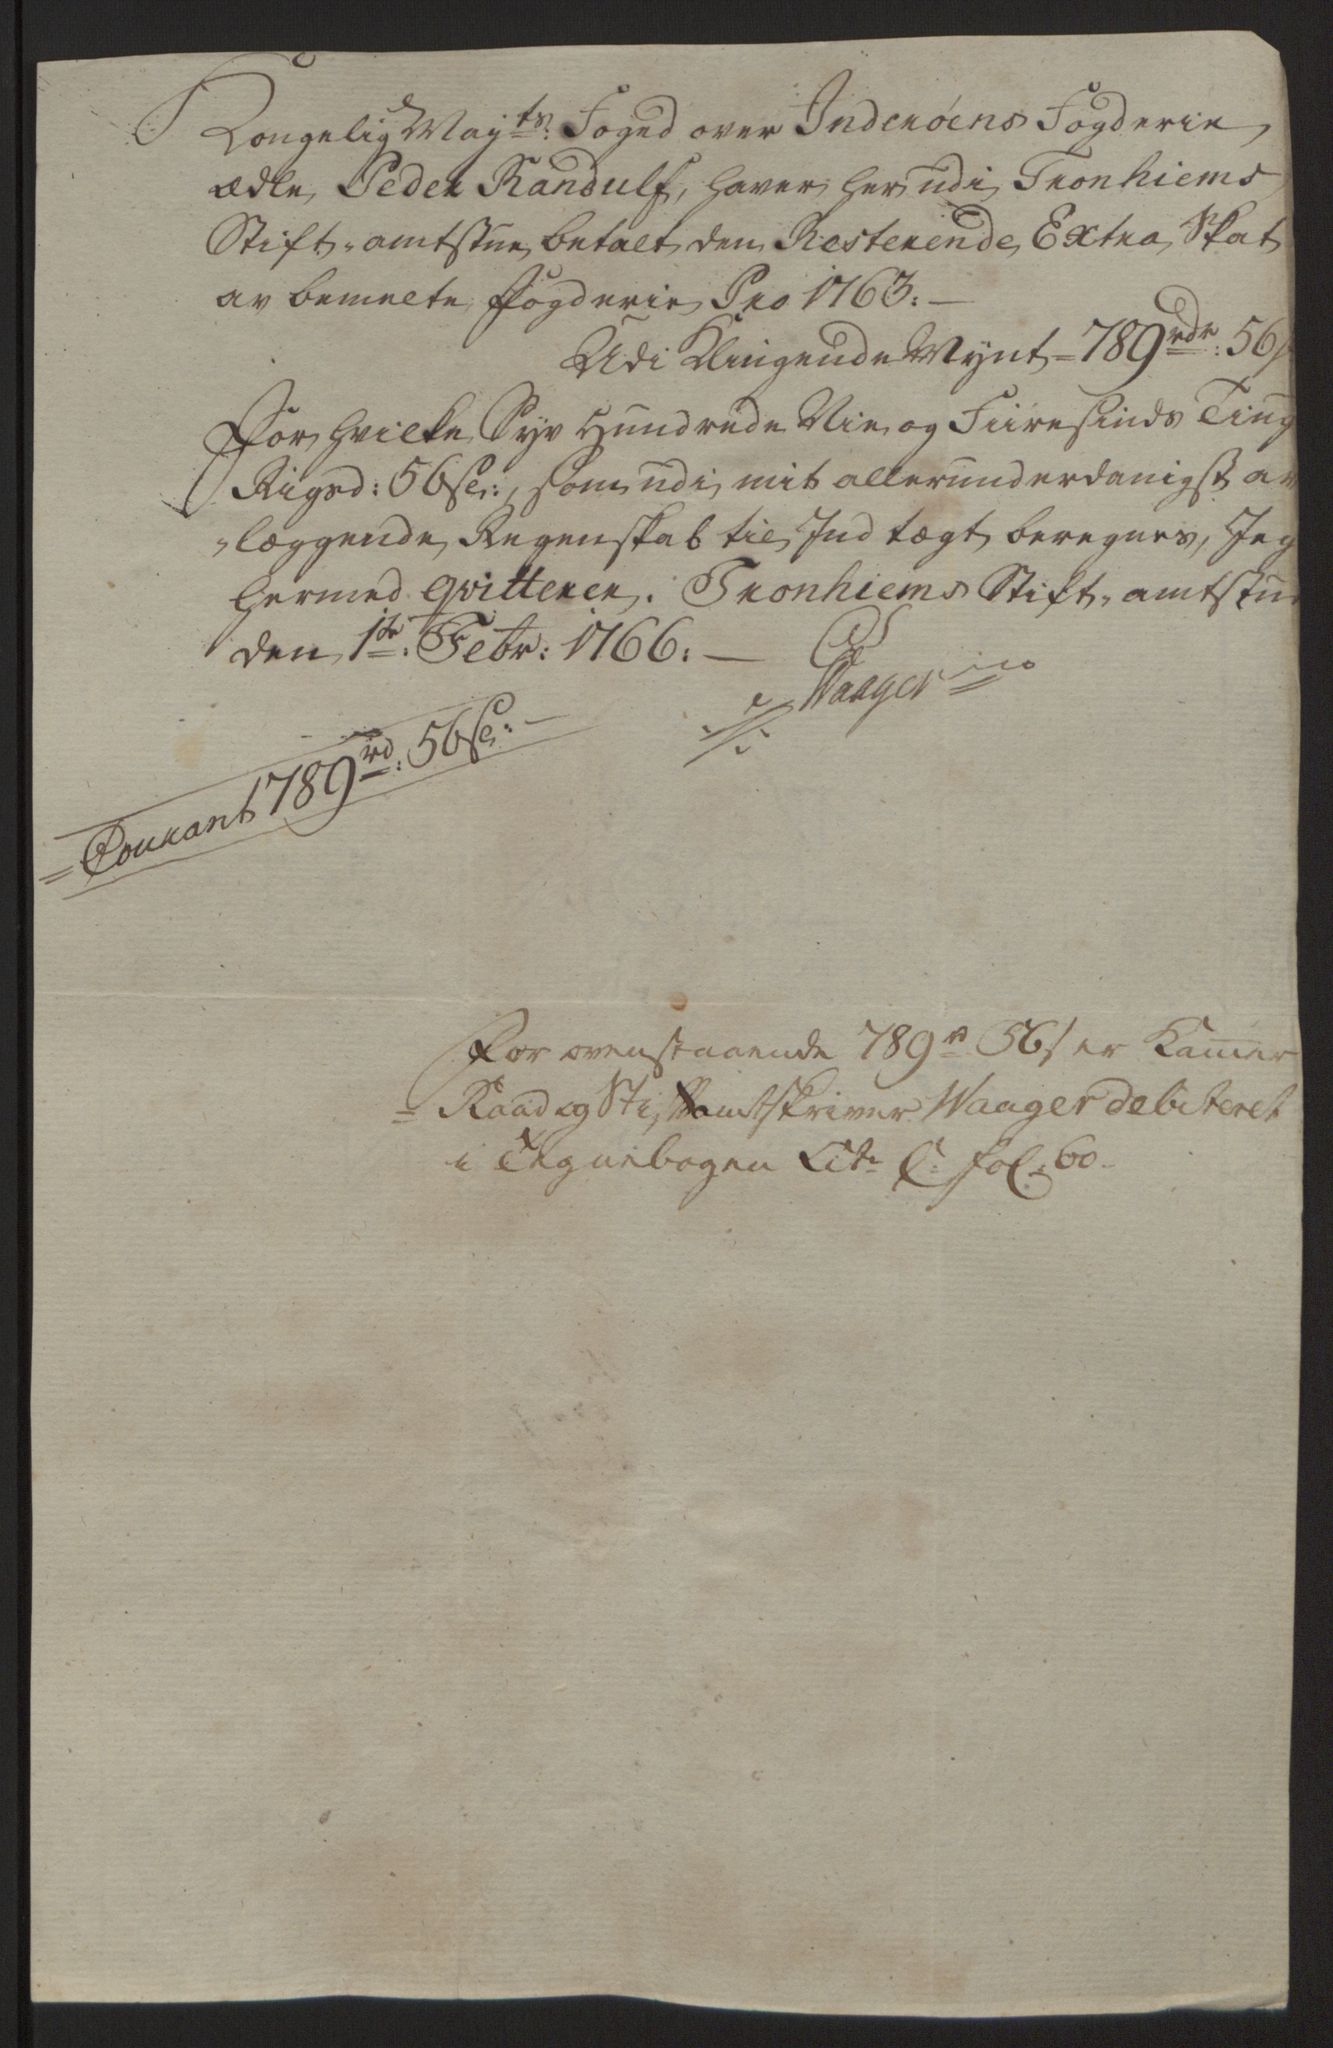 Kongelig Mayts. Foged over Inderøens Fogderie,
ædle Peder Randulf, haver her udi Tronhiems
Stift-amtstue, betalt den Resterende, Extra Skat
av bemelte Fogderie Pro 1763: —
Udi Klingende Mynt - 789 rdr: 56 s
For hvilke Syv Hundrede Nie og Fiiresinds Tiug
Rigsd: 56 sl:, som udi mit allerunderdanigst av
læggende Regenskab til Indtægt beregnes, Jeg
hermed qvitterer. Tronhiems Stift-amtstue
den 1te. Febr: 1766: —
Waager
Courant 789 rd: 56 sl: —
For ovenstaaende 789 r 56 s er Kammer
Raad og Stiftamtskriver Waager debiteret
i Tegnebogen Litr C: fol. 60